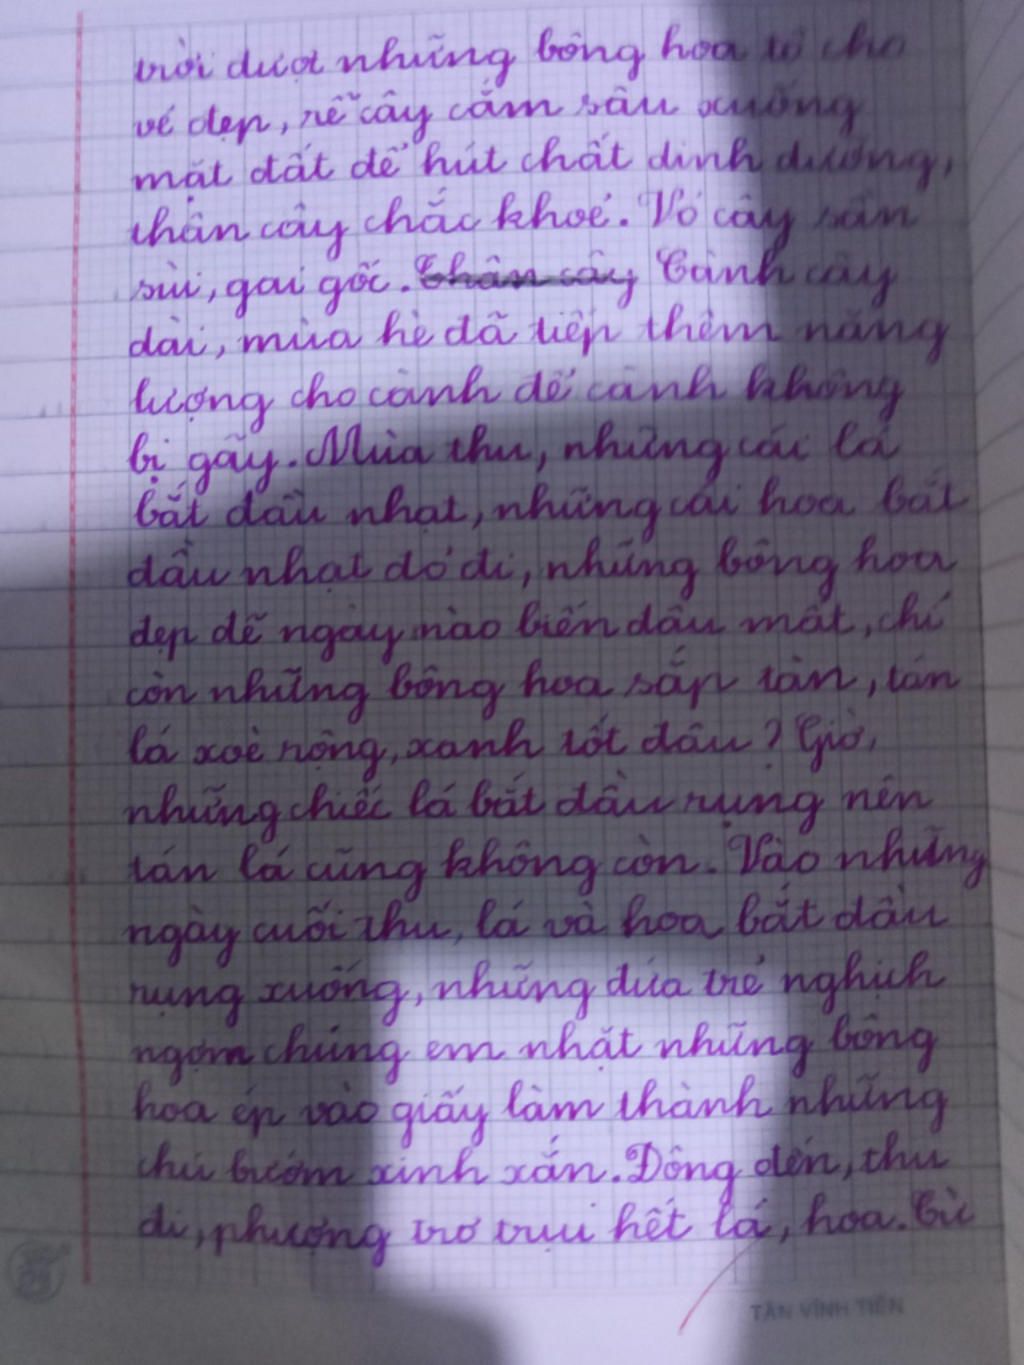 vời dượt những bông hoa tô cho
vẻ đẹp, rễ cây cắm sâu xuống
mặt đất để hút chất dinh dưỡng,
thân cây chắc khoẻ. Vỏ cây sần
sùi, gai gốc. Thân cây Cành cây
dài, mùa hè đã tiếp thêm năng
lượng cho cành để cành không
bị gãy. Mùa thu, những cái lá
bắt đầu nhạt, những cái hoa bắt
đầu nhạt đỏ đi, những bông hoa
đẹp đẽ ngày nào biến đâu mất, chỉ
còn những bông hoa sắp tàn, tán
lá xoè rộng, xanh tốt đâu? Giờ,
những chiếc lá bắt đầu rụng nên
tán lá cũng không còn. Vào những
ngày cuối thu, lá và hoa bắt đầu
rụng xuống, những đứa trẻ nghịch
ngợm chúng em nhặt những bông
hoa ép vào giấy làm thành những
chú bướm xinh xắn. Đông đến, thu
đi, phượng trơ trụi hết lá, hoa. Cừ
TÂN VĨNH TIẾN